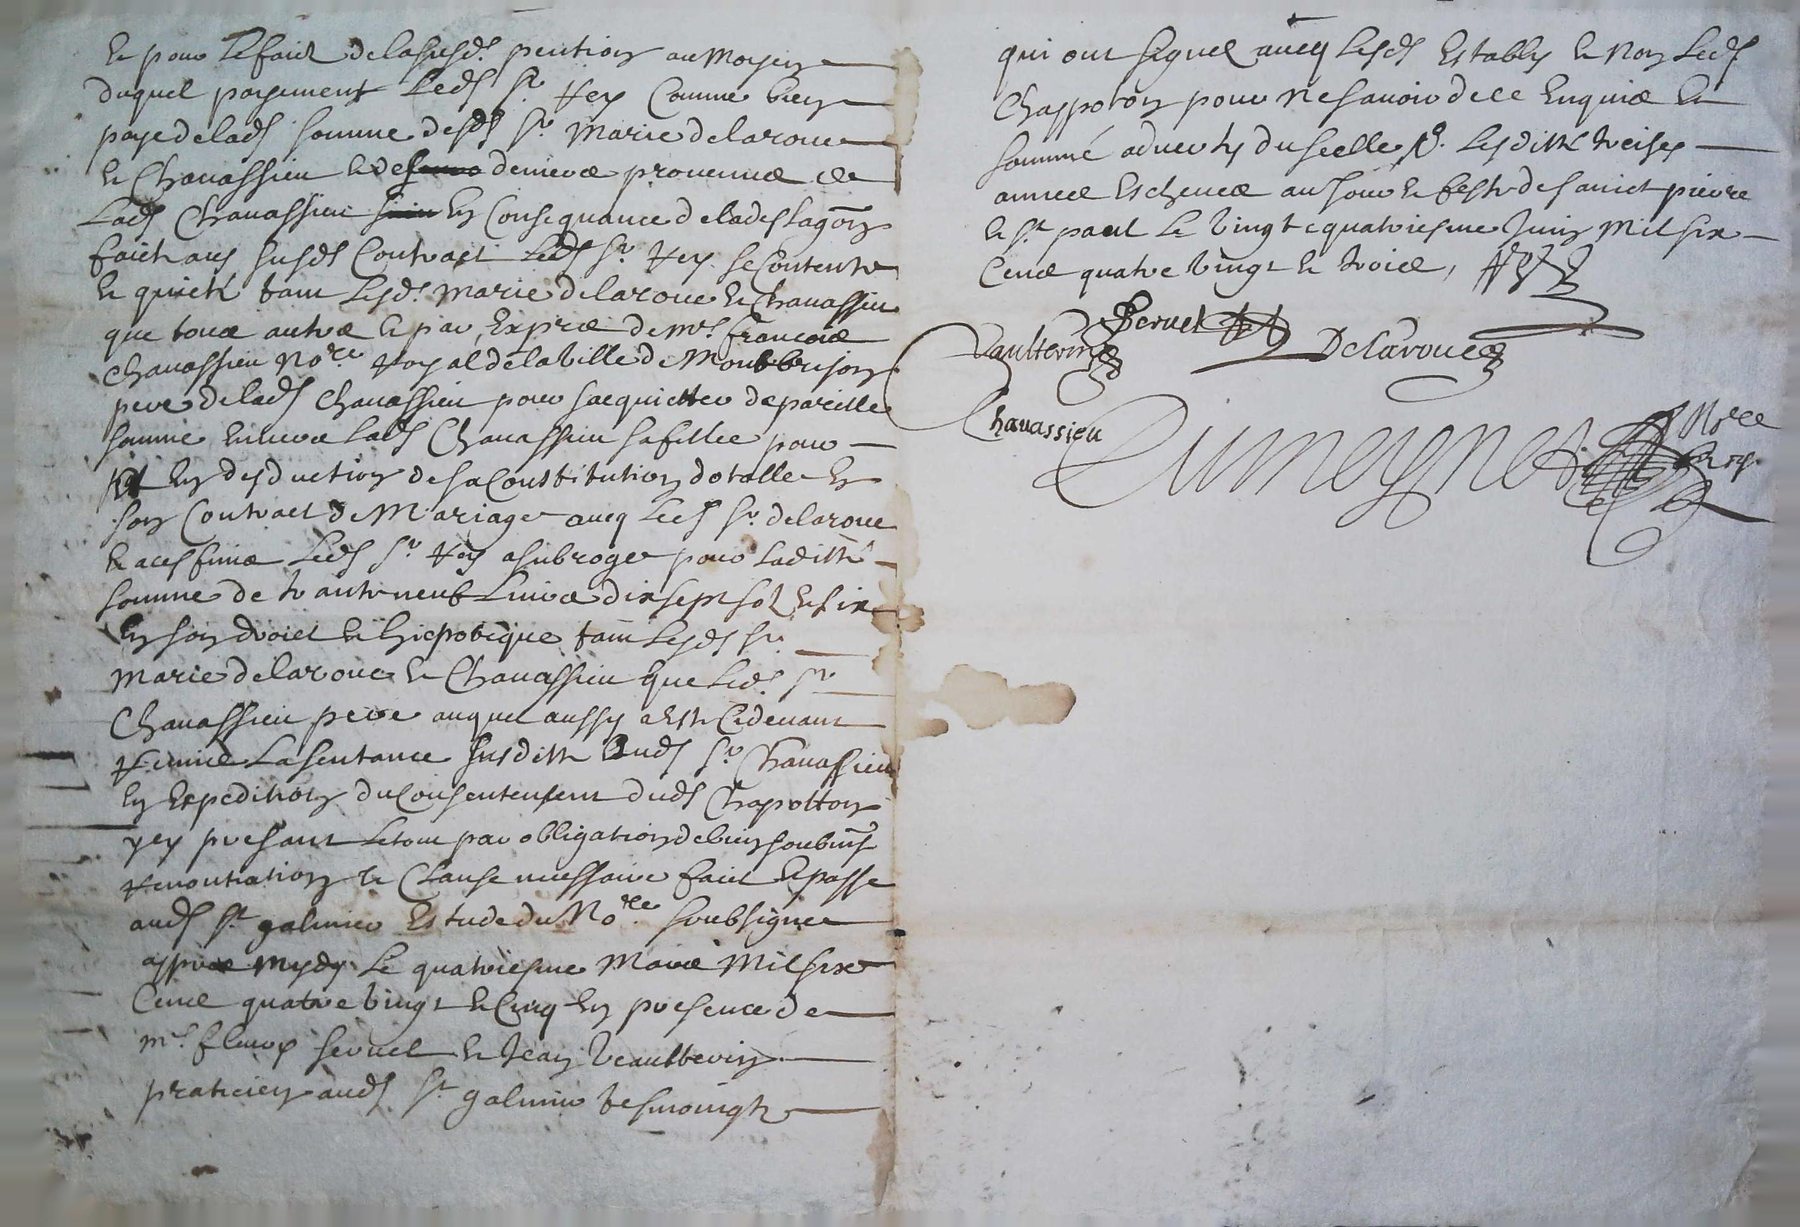 et pour le faict de la susd. pention au moyen
duquel payement led. Sr Rey comme bien
payé de lad. somme desd. Sr Marie Delaroue
et Chavassieu et de deniers provenus de
lad. Chavassieu en consequance de lad.
faict au susd. contract led. Sr Rey se contente
et quicte tant lesd. Marie Delaroue et Chavassieu
que tous autres et par exprés de Me francois
Chavassieu Nore Royal de la ville de Montbrison
pere de lad. Chavassieu pour sacquitter de pareille
somme envers lad. Chavassieu sa fillee pour
en desduction de sa Constitution dotalle en
son Contract de Mariage aucq led. Sr Delaroue
et a ces fins led. Sr Rey a subrogé pour laditte
somme de trante neuf Livres dix sept solz et six
en son droict et hiepoteque tant lesd. Sr
Marie Delaroue et Chavassieu que led. Sr
Chavassieu pere auquel aussy a este cy devant
Remise la sentance susditte aud. Sr Chavassieu
en Expedition du consentement dud. Chapotton
icy presant le tout par obligation de biens soubmis
Renontiation et clause necessaire faict et passé
aud. St galmier Estude du Nore soubsigné
appres mydy le quatriesme Mars Mil six
Cens quatre vingt et Cinq en presence de
Me fleury servel et Jean Veaultevrin
praticien aud. St galmier tesmoingtz
qui ont signé aucq lesd. Establis et non led.
Chappoton pour ne savoir de ce Enquis et
sommé adverty du scelle lesditte treise
annee Escheues au jour et feste de sainct pierre
et St paul le vingt quatriesme Juin Mil six
Cens quatre vingt et trois, Rey
Servel
Vaultevrin Delaroue
Chavassieu
Dumeynet Nore
Roy.